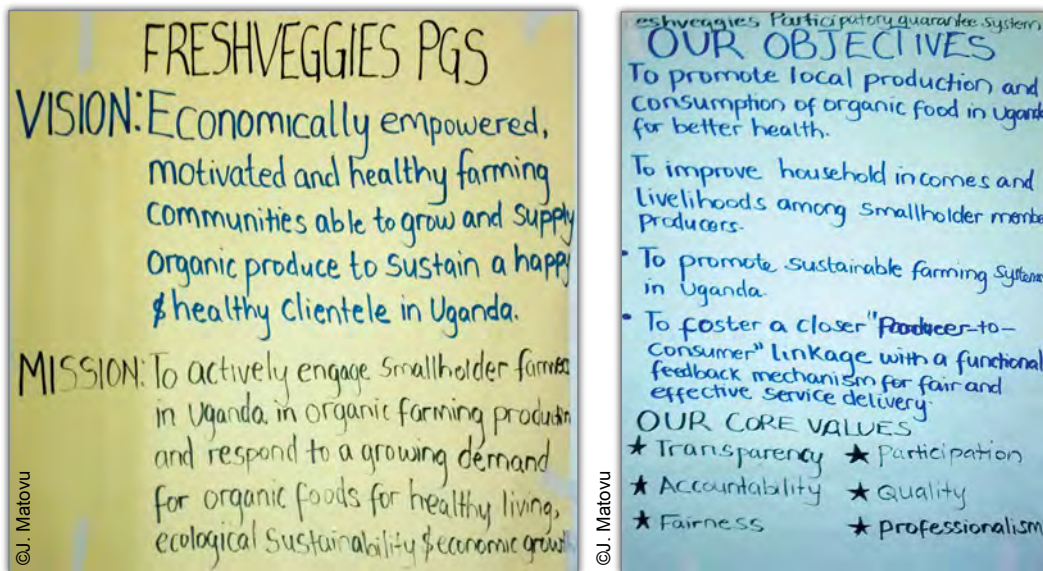 FRESHVEGGIES PGS
VISION: Economically empowered,
motivated and healthy farming
communities able to grow and supply
organic produce to sustain a happy
& healthy clientele in Uganda.
MISSION: To actively engage smallholder farmers
in Uganda in organic farming production
and respond to a growing demand
for organic foods for healthy living,
ecological sustainability & economic growth
©J. Matovu
eshveggies Participatory guarantee system
OUR OBJECTIVES
To promote local production and
consumption of organic food in Uganda
for better health.
To improve household incomes and
livelihoods among smallholder membe
producers.
• To promote sustainable farming systems
in Uganda.
• To foster a closer "Producer-to-
consumer" linkage with a functional
feedback mechanism for fair and
effective service delivery.
OUR CORE VALUES
★ Transparency ★ Participation
★ Accountability ★ Quality
★ Fairness ★ professionalism
©J. Matovu